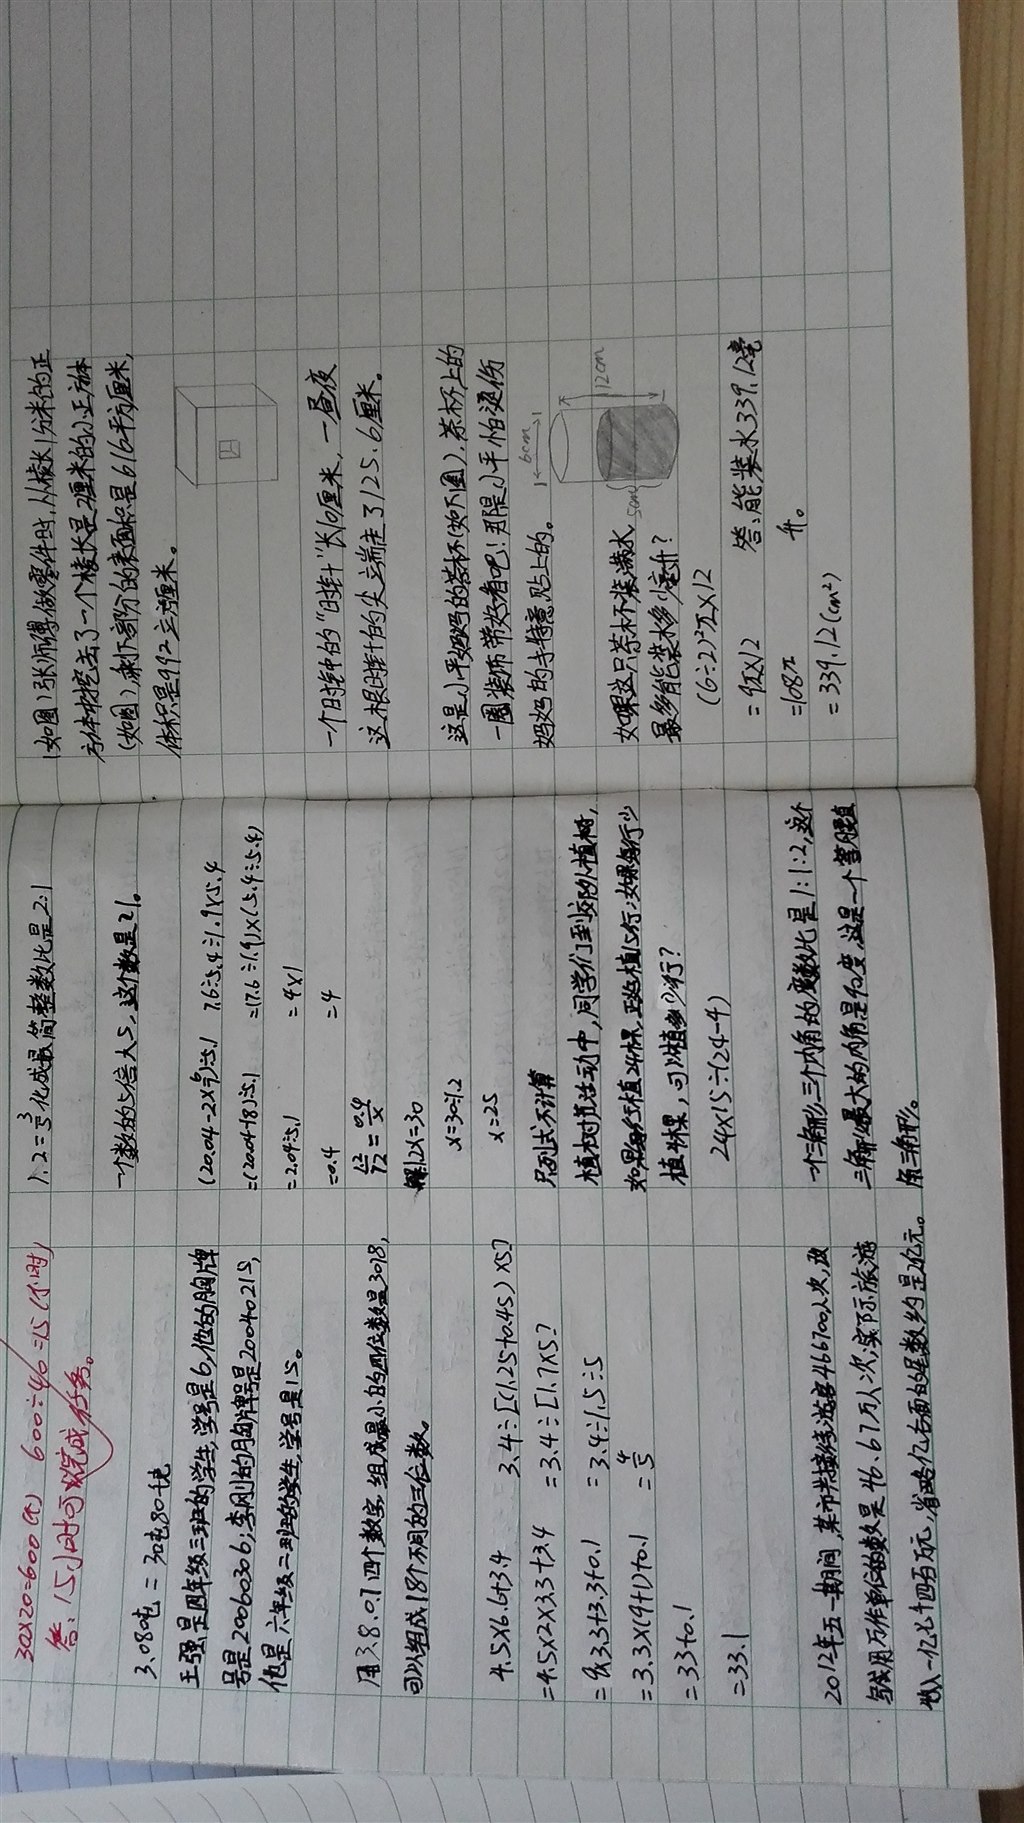 30×20=600(个) 600÷40=15(小时)
答:15小时可以完成任务。
3.08吨=3吨80千克
王强是四年级三班的学生,学号是6,他的胸牌
号是20060306;李刚的胸牌号是20040215,
他是六年级二班的学生,学号是15。
用3.8.0.1四个数字,组成最小的四位数是3018,
可以组成18个不同的三位数。
4.5×6.6+3.4 3.4÷[(1.25+0.45)×5]
=4.5×2×3.3+3.4 =3.4÷[1.7×5]
=9×3.3+3.3+0.1 =3.4÷1.5÷5
=3.3×(9+1)+0.1 =4/5
=33+0.1
=33.1
2012年五一期间,某市共接待游客466700人次,改
写成用万作单位的数是46.67万人次,实际旅游
收入一亿七千四百万元,省略亿后面的尾数约是2亿元。
1.2=3/5化成最简整数比是2:1
一个数的5倍大5,这个数是21。
(20.04-2×9)÷5.1 7.6÷5.4÷1.9×5.4
=(20.04-18)÷5.1 =(7.6÷1.9)×(5.4÷5.4)
=2.04÷5.1 =4×1
=0.4 =4
1.2/12=0.4/x
解:1.2x=30
x=30÷1.2
x=25
只列式不计算
植树节活动中,同学们到郊外植树,
如果每行植24棵,正好植15行;如果每行少
植4棵,可以植多少行?
24×15÷(24-4)
一个三角形,三个内角的度数比是1:1:2,这个
三角形最大的内角是90度,这是一个等腰直
角三角形。
(如图)张师傅做零件时,从棱长1分米的正
方体中挖去了一个棱长是2厘米的小正方体
(如图),剩下部分的表面积是616平方厘米,
体积是992立方厘米。
一个时钟的“时针”长10厘米,一昼夜
这根时针的尖端走了125.6厘米。
这是小平妈妈的茶杯(如下图),茶杯上的
一圈装饰带好看吧!那是小平怕烫伤
妈妈的手特意贴上的。
6cm
12cm
5cm
如果这只茶杯装满水
最多能装水多少毫升?
(6÷2)²π×12
=9π×12 答:能装水339.12毫
=108π 升。
=339.12(cm²)